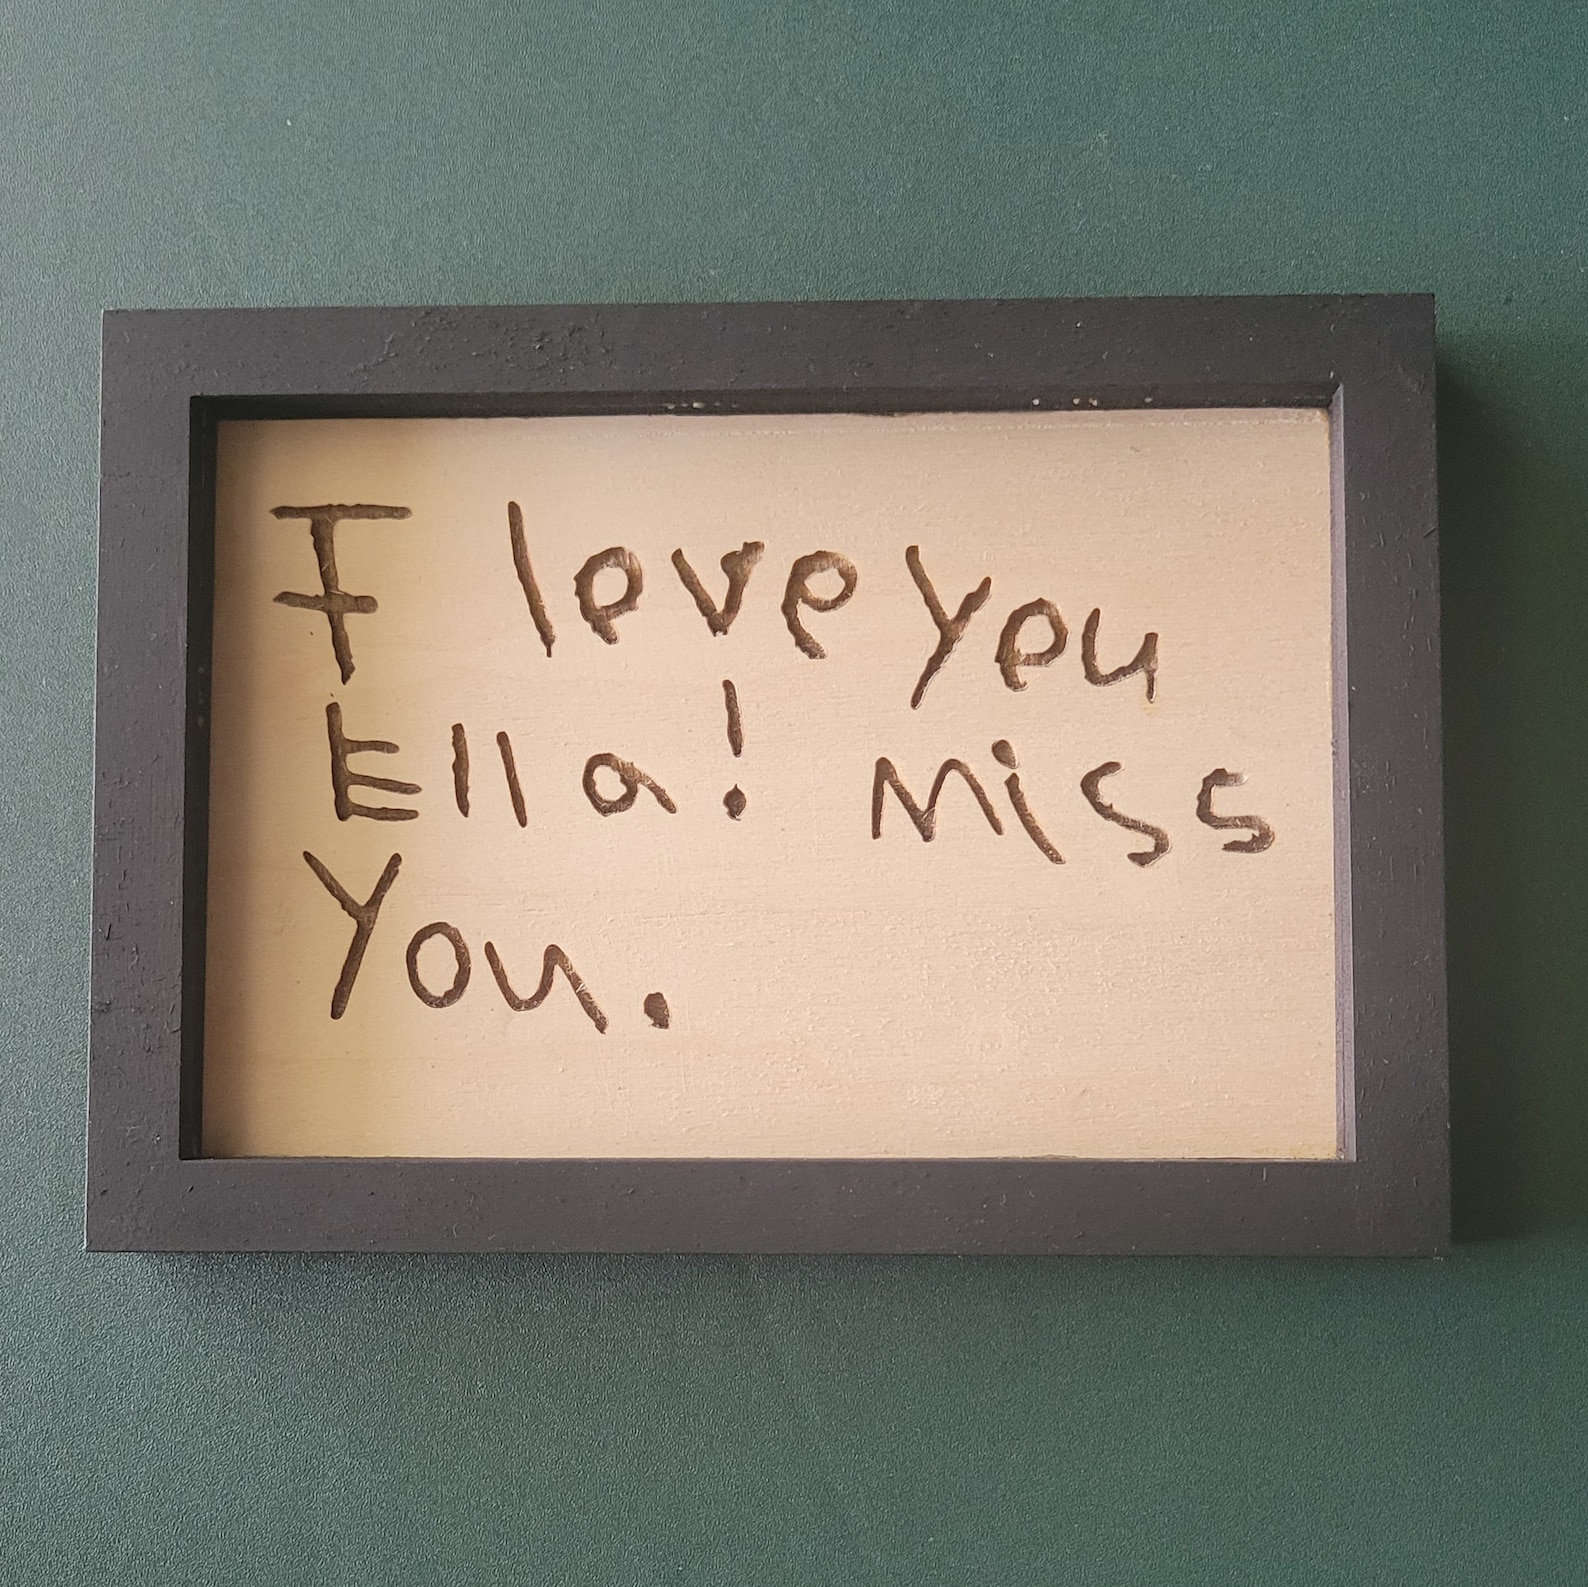 I love you
Ella! Miss
You.